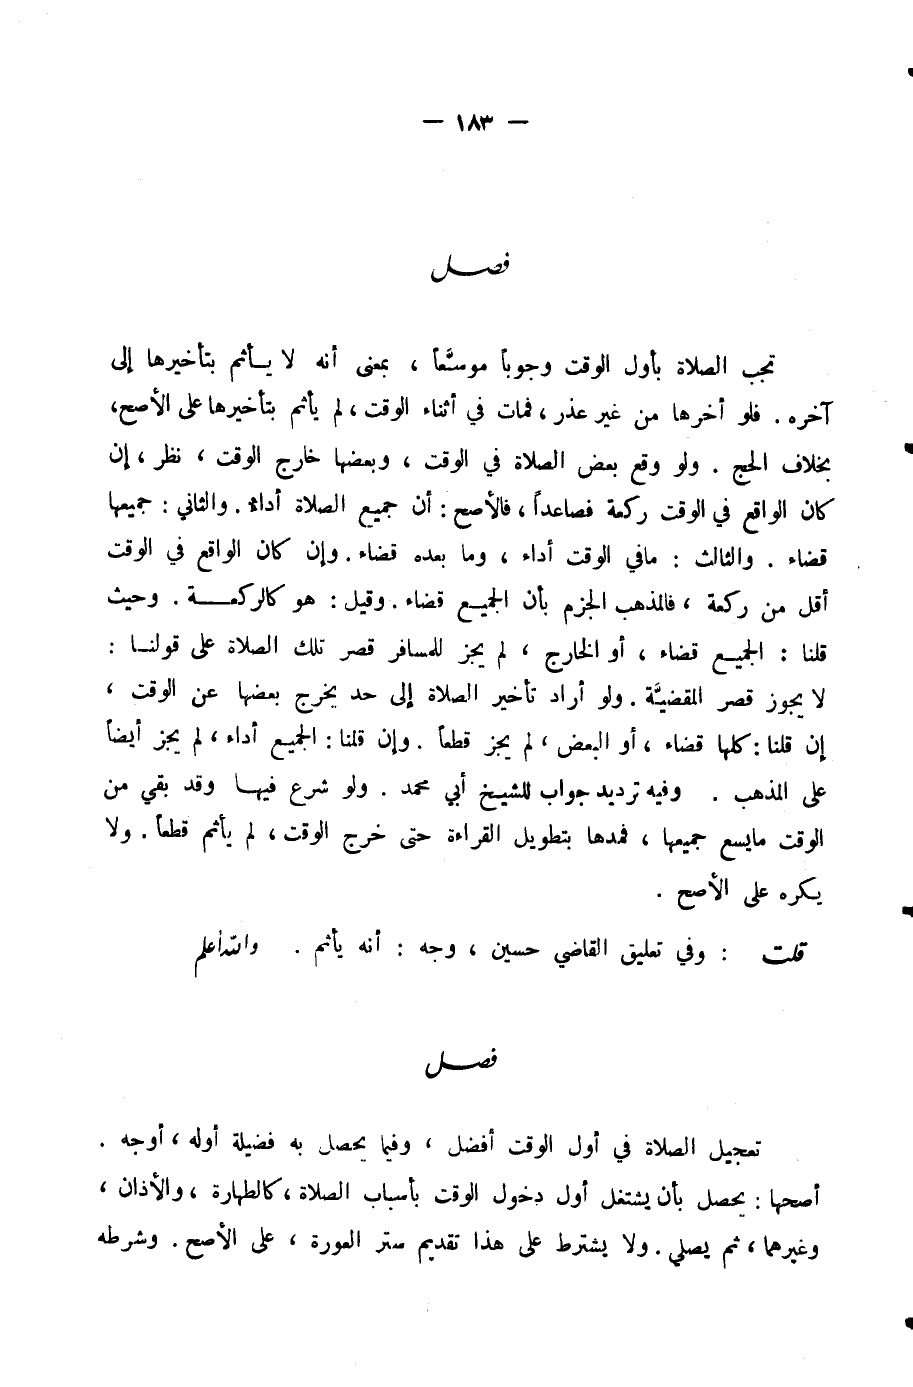 — ١٨٣ —
فصل
تجب الصلاة بأول الوقت وجوباً موسَّعاً ، بمعنى أنه لا يأثم بتأخيرها إلى
آخره . فلو أخرها من غير عذر ، فمات في أثناء الوقت ، لم يأثم بتأخيرها على الأصح ،
بخلاف الحج . ولو وقع بعض الصلاة في الوقت ، وبعضها خارج الوقت ، نظر ، إن
كان الواقع في الوقت ركعة فصاعداً ، فالأصح : أن جميع الصلاة أداء . والثاني : جميعها
قضاء . والثالث : مافي الوقت أداء ، وما بعده قضاء . وإن كان الواقع في الوقت
أقل من ركعة ، فالمذهب الجزم بأن الجميع قضاء . وقيل : هو كالركعة . وحيث
قلنا : الجميع قضاء ، أو الخارج ، لم يجز للمسافر قصر تلك الصلاة على قولنا :
لا يجوز قصر المقضيَّة . ولو أراد تأخير الصلاة إلى حد يخرج بعضها عن الوقت ،
إن قلنا : كلها قضاء ، أو البعض ، لم يجز قطعاً . وإن قلنا : الجميع أداء ، لم يجز أيضاً
على المذهب . وفيه ترديد جواب للشيخ أبي محمد . ولو شرع فيها وقد بقي من
الوقت مايسع جميعها ، فمدها بتطويل القراءة حتى خرج الوقت ، لم يأثم قطعاً . ولا
يكره على الأصح .
قلت : وفي تعليق القاضي حسين ، وجه : أنه يأثم . والله أعلم
فصل
تعجيل الصلاة في أول الوقت أفضل ، وفيما يحصل به فضيلة أوله ، أوجه .
أصحها : يحصل بأن يشتغل أول دخول الوقت بأسباب الصلاة ، كالطهارة ، والأذان ،
وغيرهما ، ثم يصلي . ولا يشترط على هذا تقديم ستر العورة ، على الأصح . وشرطه